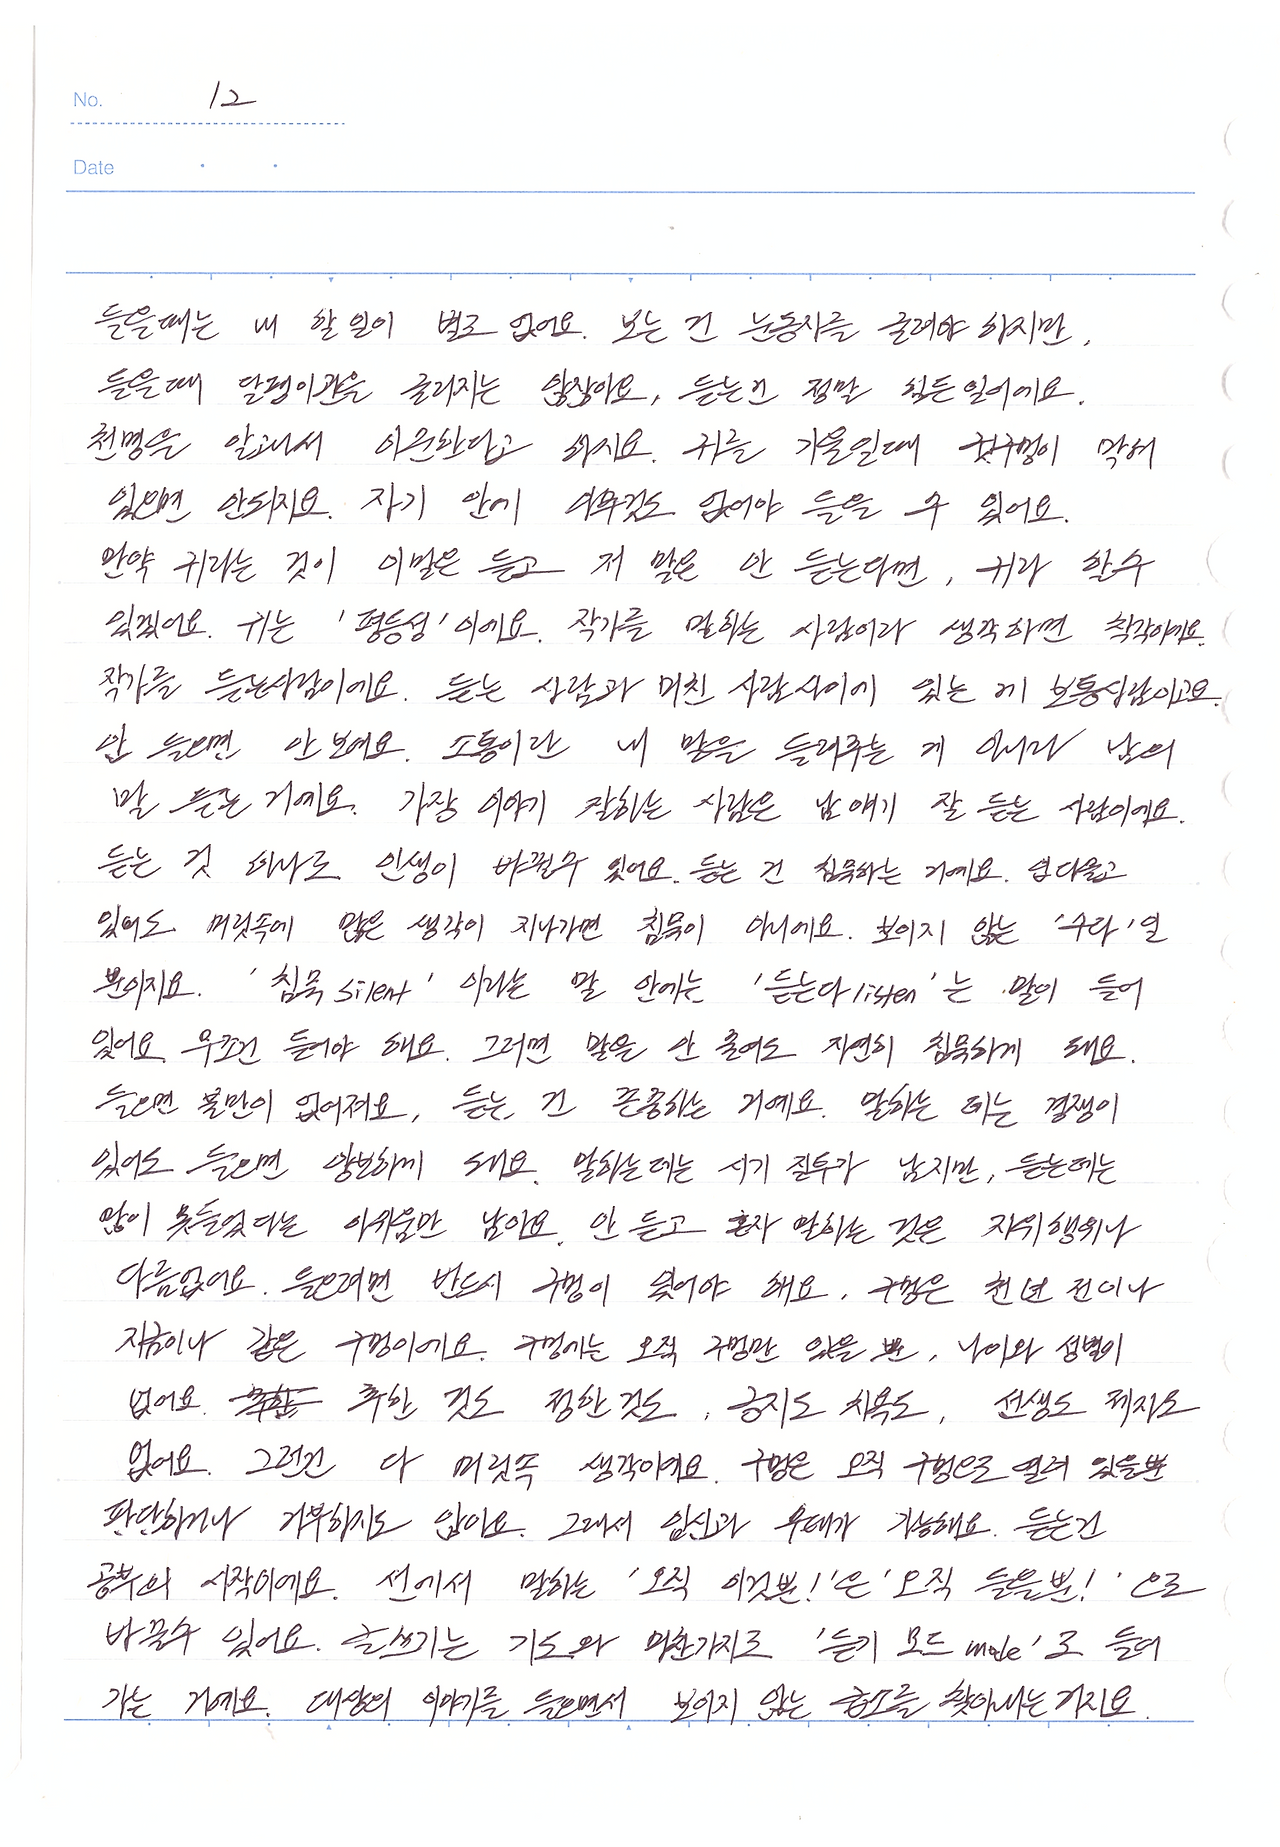 No. 12
Date
들을때는 내 할 일이 별로 없어요. 보는 건 눈동자를 굴려야 하지만,
들을때 달팽이관을 굴리지는 않잖아요, 듣는건 정말 힘든일이에요.
천명을 알고나서 이순한다고 하지요. 귀를 기울일때 귓구멍이 막혀
있으면 안되지요. 자기 안에 아무것도 없어야 들을 수 있어요.
만약 귀라는 것이 이말은 듣고 저 말은 안 듣는다면, 귀라 할수
있겠어요. 귀는 '평등성'이에요. 작가를 말하는 사람이라 생각하면 착각이에요.
작가를 듣는사람이에요. 듣는 사람과 미친 사람사이에 있는 게 보통사람이고요.
안 들으면 안보여요. 소통이란 내 말을 들려주는 게 아니라 남의
말 듣는 거예요. 가장 이야기 잘하는 사람은 남 얘기 잘 듣는 사람이에요.
듣는 것 하나로 인생이 바뀔수 있어요. 듣는 건 침묵하는 거예요. 입다물고
있어도 머릿속에 많은 생각이 지나가면 침묵이 아니에요. 보이지 않는 '수다'일
뿐이지요. '침묵 silent' 이라는 말 안에는 '듣는다 listen'는 말이 들어
있어요. 무조건 들어야 해요. 그러면 말은 안 줄여도 자연히 침묵하게 돼요.
들으면 불만이 없어져요, 듣는 건 존중하는 거예요. 말하는 데는 경쟁이
있어도 들으면 양보하게 돼요. 말하는데는 시기 질투가 남지만, 듣는데는
많이 못들었다는 아쉬움만 남아요. 안 듣고 혼자 말하는 것은 자위행위나
다름없어요. 들으려면 반드시 구멍이 있어야 해요. 구멍은 천년 전이나
지금이나 같은 구멍이에요. 구멍에는 오직 구멍만 있을 뿐, 나이와 성별이
없어요. 추한 것도 정한것도, 긍지도 치욕도, 선생도 제자도
없어요. 그런건 다 머릿속 생각이에요. 구멍은 오직 구멍으로 열려 있을뿐
판단하거나 거부하지도 않아요. 그래서 임신과 잉태가 가능해요. 듣는건
공부의 시작이에요. 선에서 말하는 '오직 이것뿐!'은 '오직 들을뿐!'으로
바꿀수 있어요. 글쓰기는 기도와 마찬가지로 '듣기 모드 mode'로 들어
가는 거예요. 대상의 이야기를 들으면서 보이지 않는 급소를 찾아내는거지요.